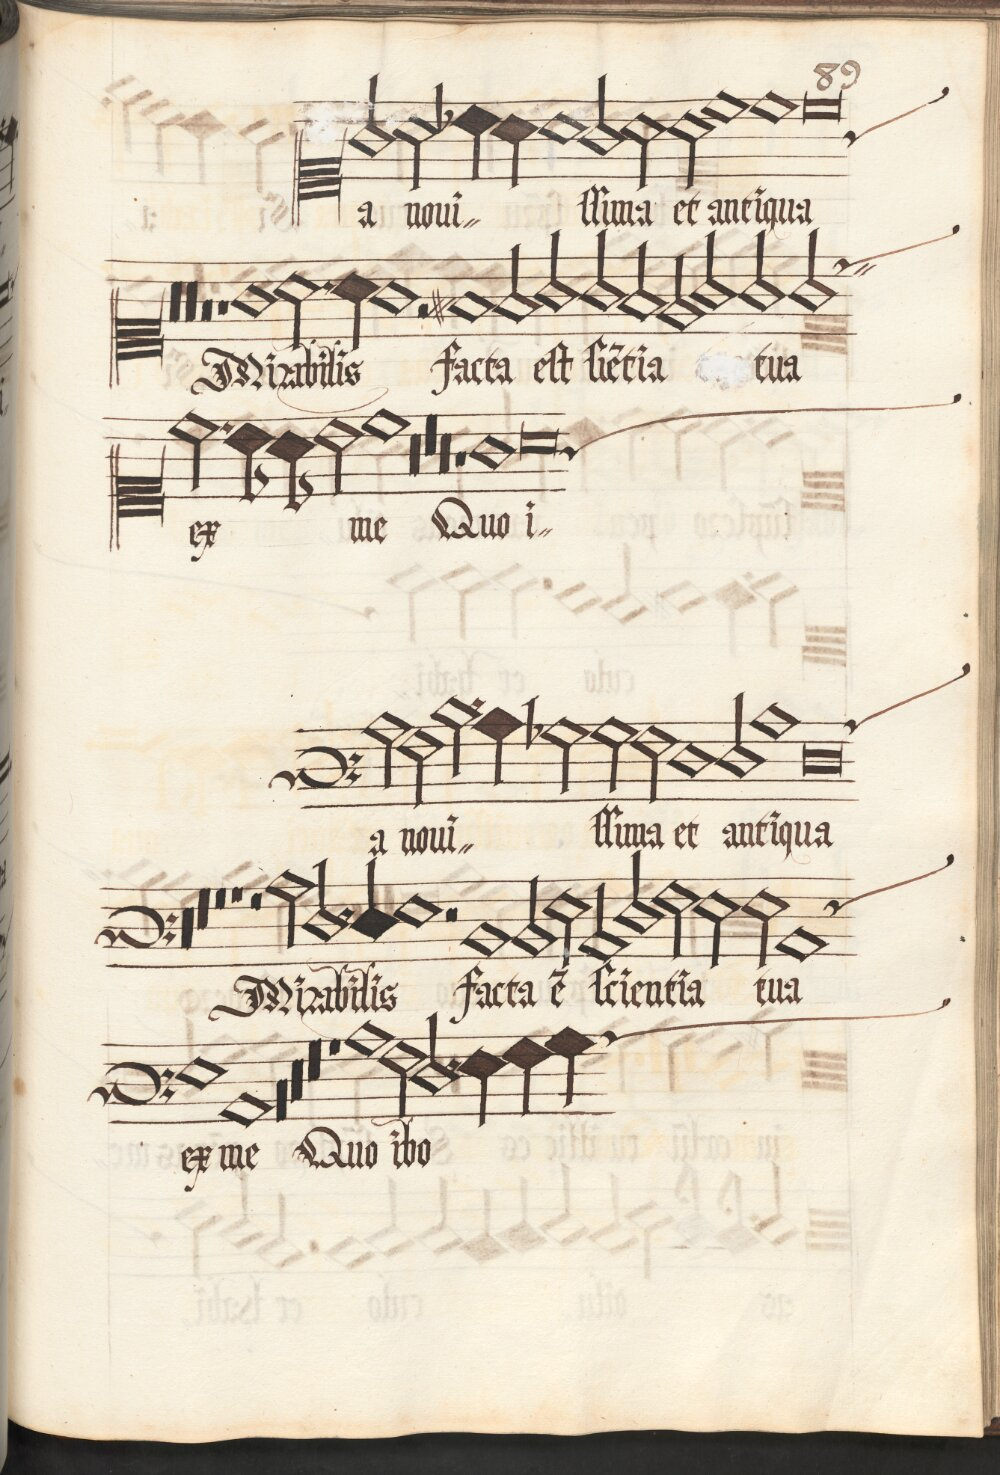 89
a noui〃 ssima et antiqua
Mirabilis facta est sciētia tua
ex me Quo i〃
a noui〃 ssima et antiqua
Mirabilis facta ē scientia tua
ex me Quo ibo